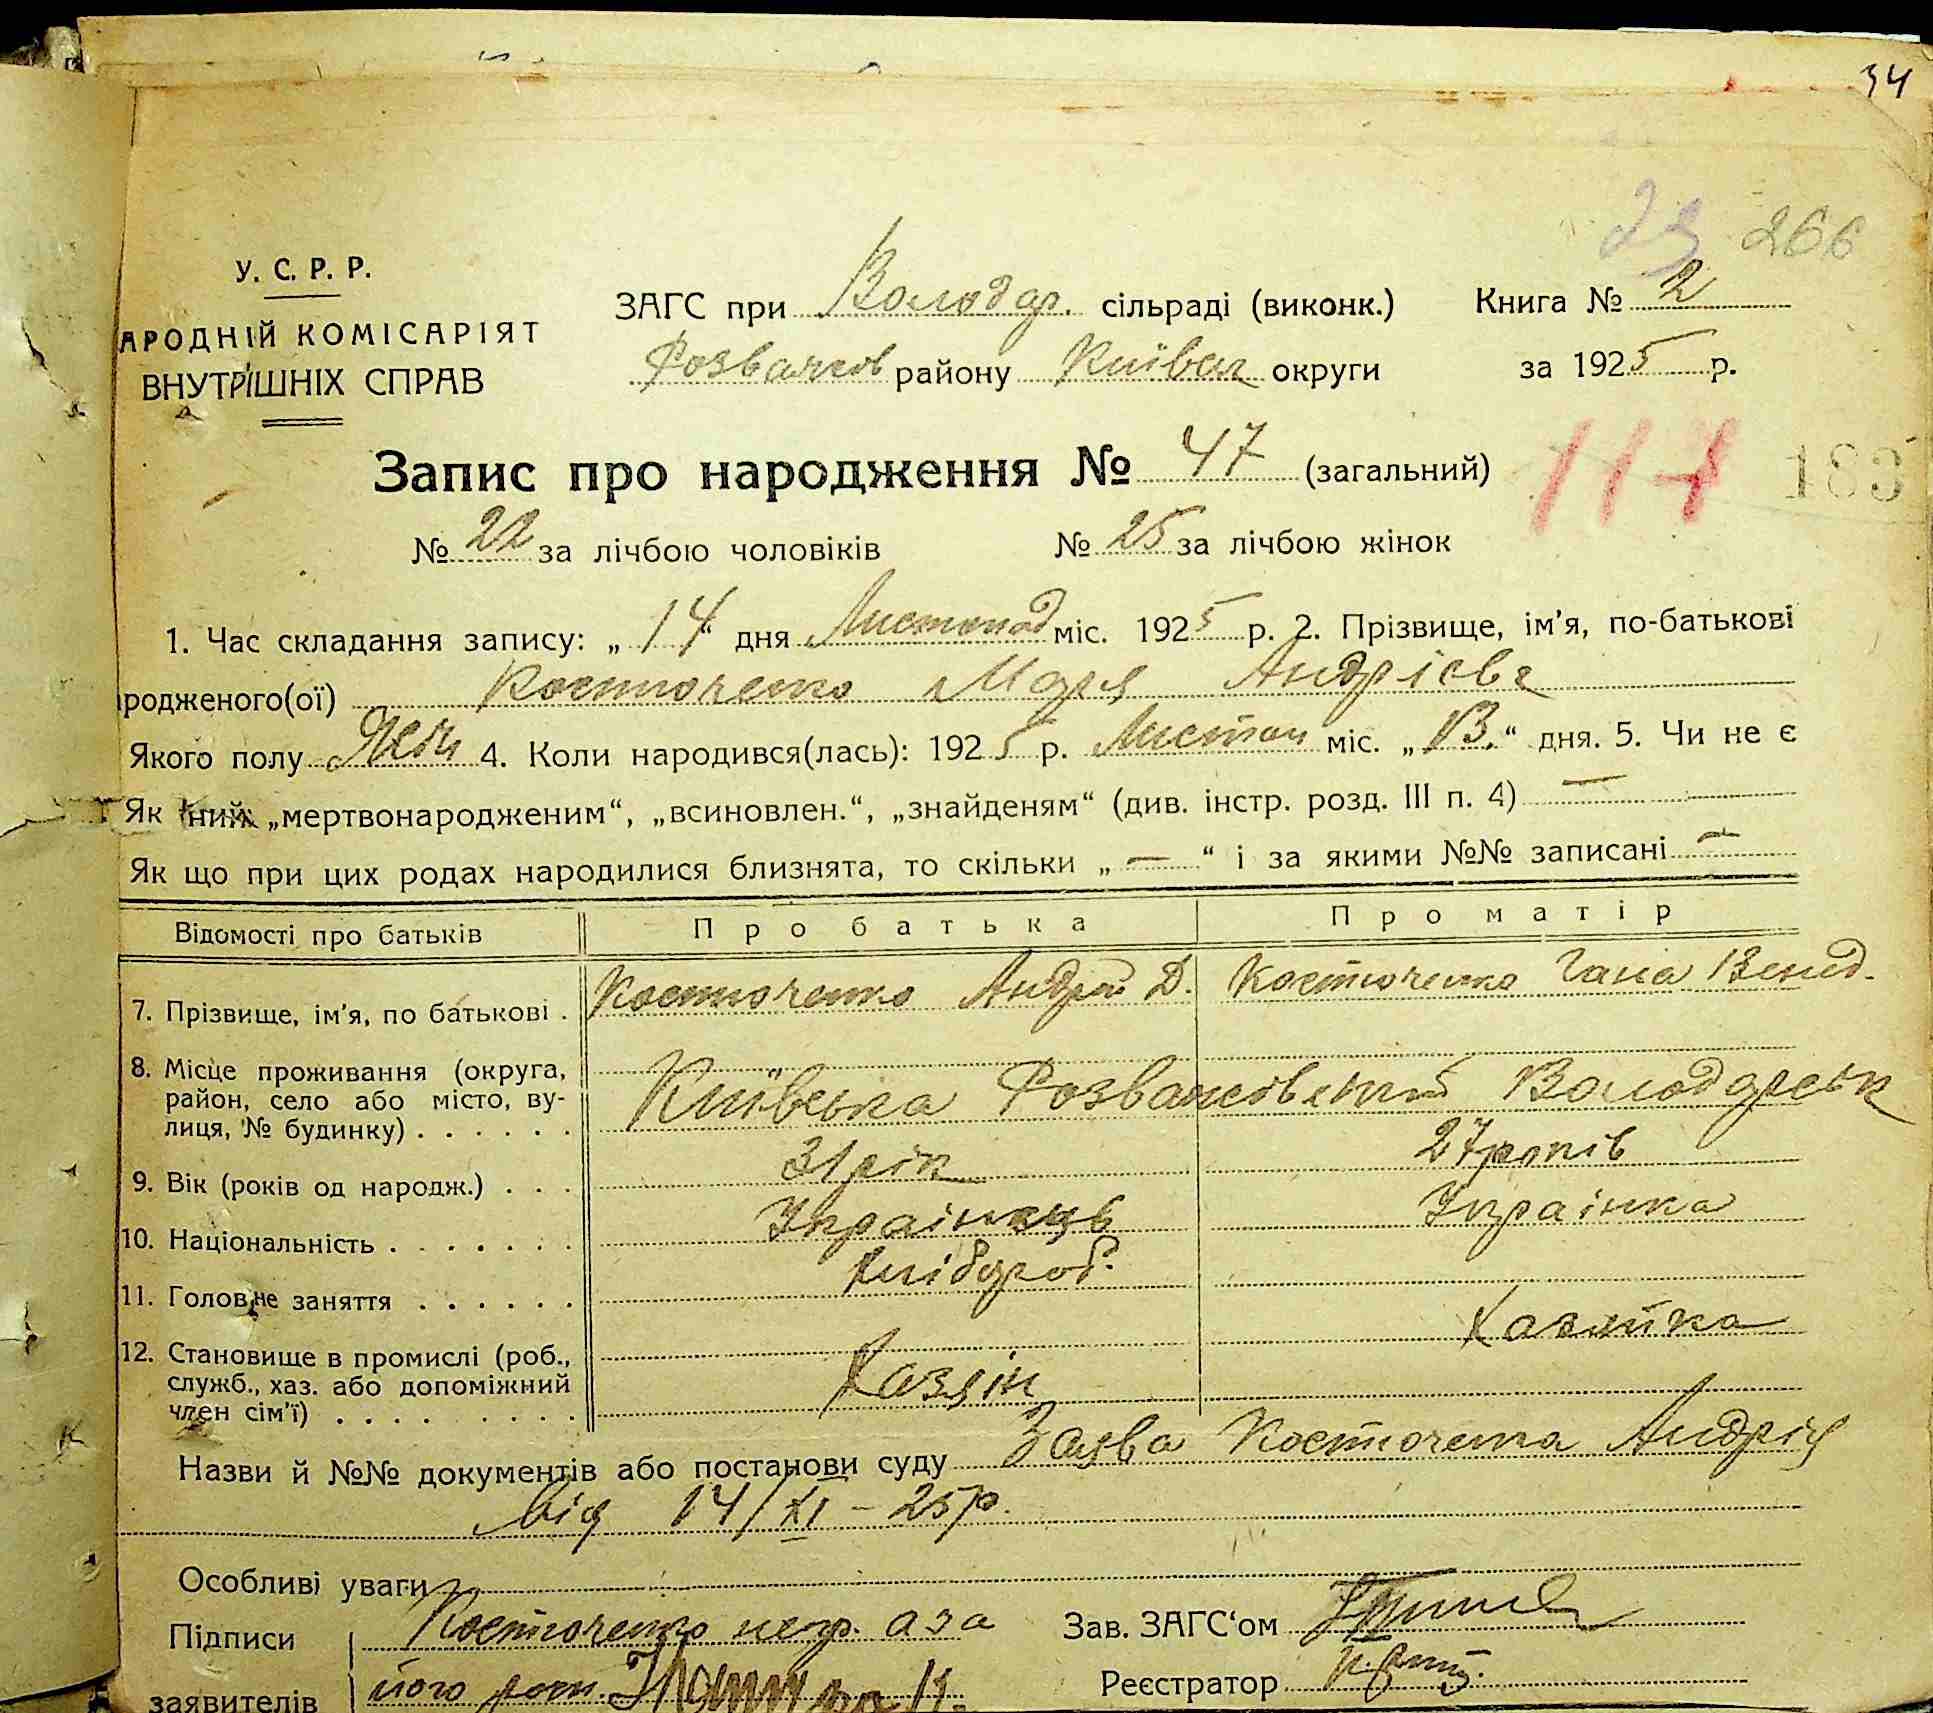 34
23 266
У. С. Р. Р.
АРОДНІЙ КОМІСАРІЯТ
ВНУТРІШНІХ СПРАВ
ЗАГС при Володар. сільраді (виконк.) Книга № 2
Розважев району Київск округи за 1925 р.
Запис про народження № 47 (загальний)
117 183
№ 22 за лічбою чоловіків № 25 за лічбою жінок
1. Час складання запису: „14“ дня Листопад міс. 1925 р. 2. Прізвище, ім'я, по-батькові
родженого(ої) Костюченко Маря Андрієва
Якого полу Жен 4. Коли народився(лась): 1925 р. Листоп міс. „13.“ дня. 5. Чи не є
Як ний „мертвонародженим“, „всиновлен.“, „знайденям“ (див. інстр. розд. III п. 4) —
Як що при цих родах народилися близнята, то скільки „—“ і за якими №№ записані —
Відомості про батьків Про батька Про матір
7. Прізвище, ім'я, по батькові . Костюченко Андрій Д. Костюченко Гана Венед.
8. Місце проживання (округа, район, село або місто, вулиця, № будинку) . . . . . . Київська Розважівський Володарськ
9. Вік (років од народж.) . . . 31 рік 27 років
10. Національність . . . . . . . Українець Українка
11. Головне заняття . . . . . . Хлібороб.
12. Становище в промислі (роб., служб., хаз. або допоміжний член сім'ї) . . . . . . . . . Хазяін Хазяйка
Назви й №№ документів або постанови суду Заява Костюченка Андрія
від 14/XI – 25 р.
Особливі уваги
Підписи Костюченко негр. а за Зав. ЗАГС'ом
заявителів його роп. Реєстратор